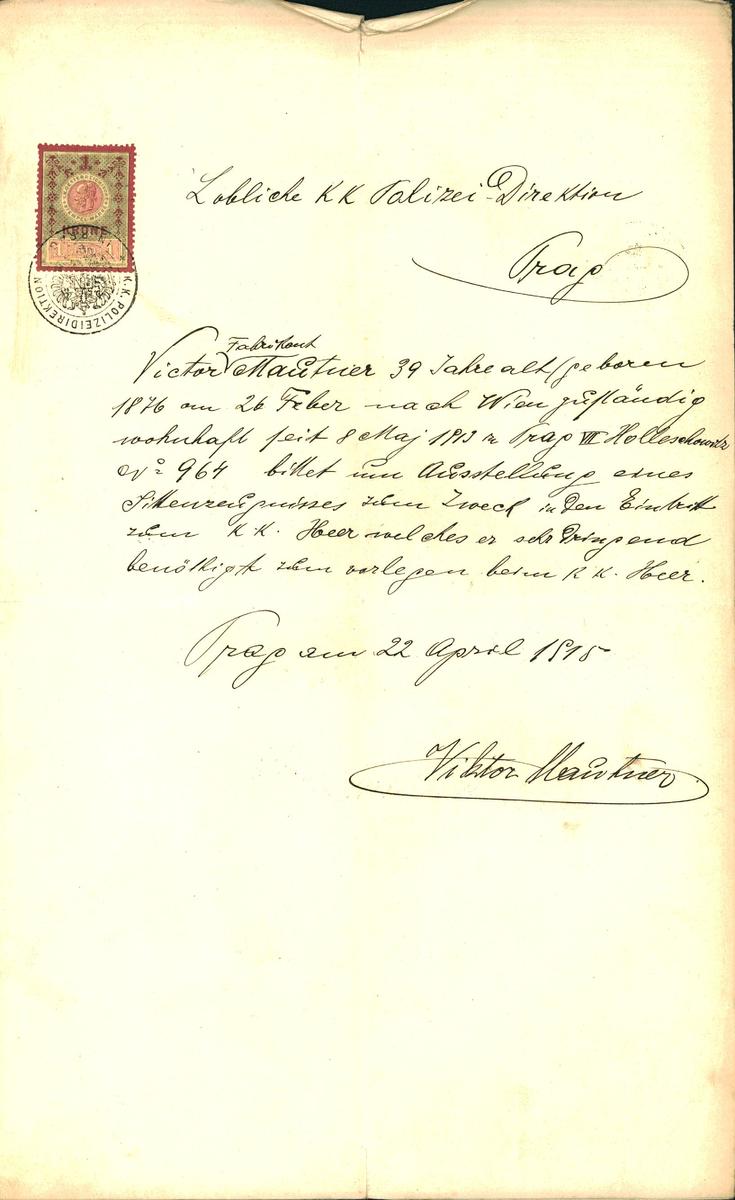 1
KRONE
1 1
K.K. POLIZEIDIREKTION
Lobliche KK Polizei-Direktion
Prag
Fabrikant
Victor Mautner 39 Jahre alt (geboren
1876 am 26 Feber nach Wien zuständig
wohnhaft seit 8 Maj 1913 in Prag VII Holleschowitz
No 964 bittet um Ausstellung eines
Sittenzeugnisses zum Zweck in den Eintritt
zum K.K. Heer welches er sehr dringend
benöthigt zum vorlegen beim K K. Heer.
Prag am 22 April 1915
Viktor Mautner